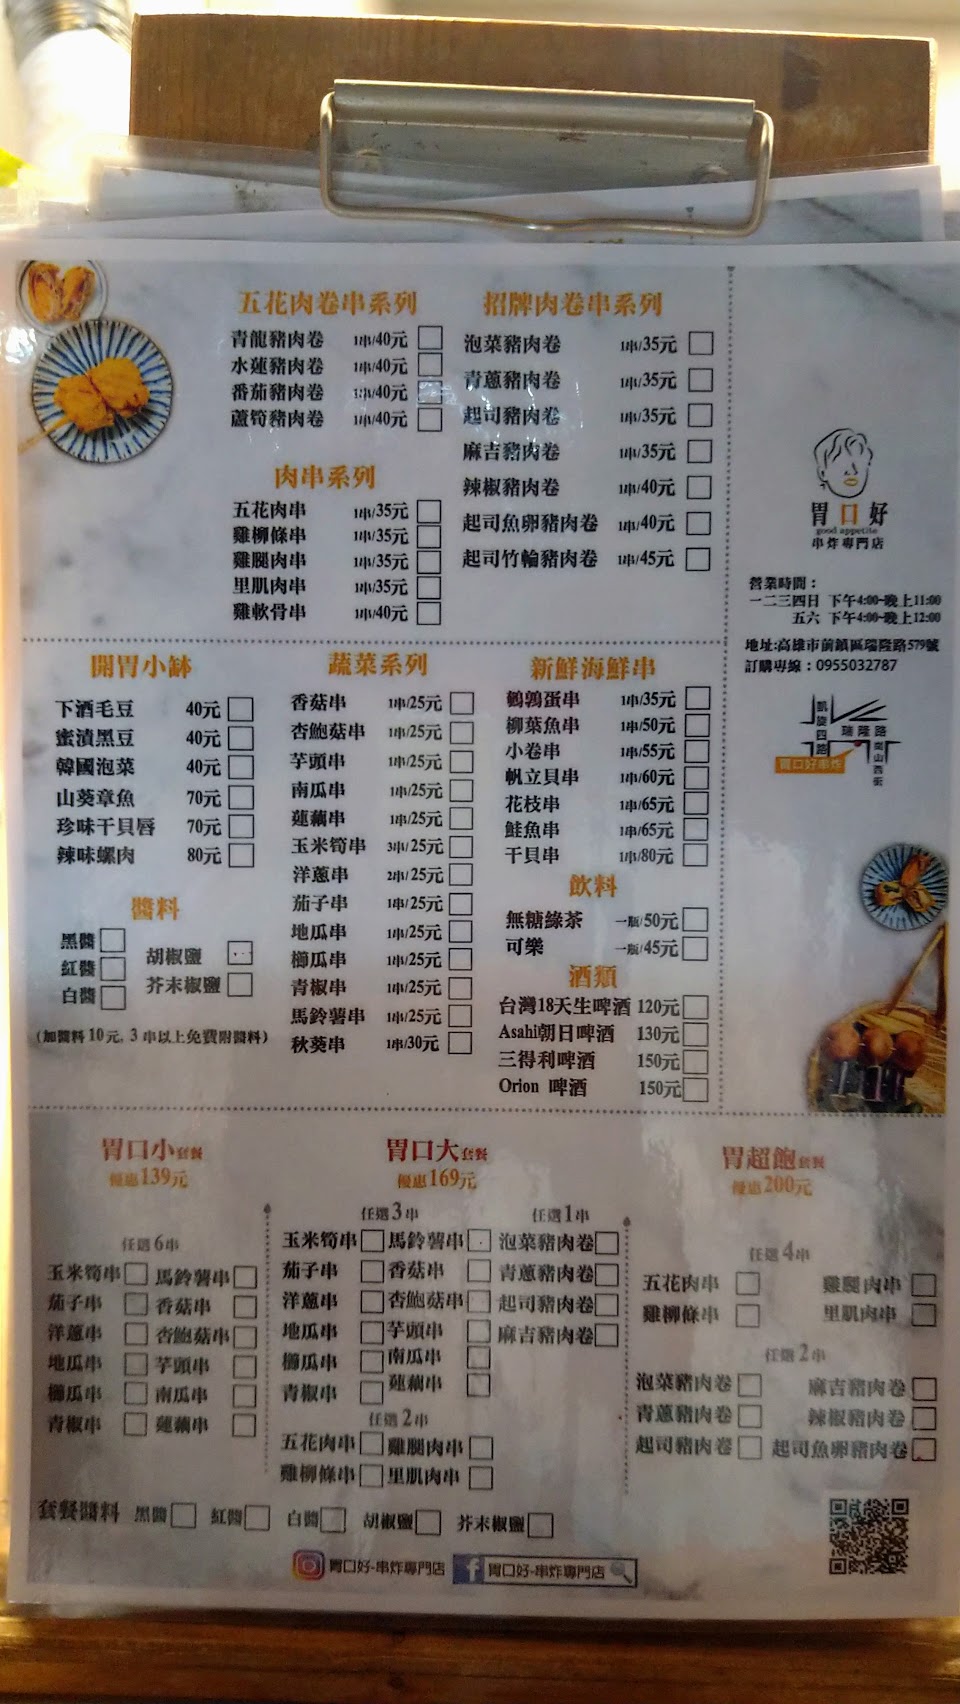 五花肉卷串系列
青龍豬肉卷 1串/40元
水蓮豬肉卷 1串/40元
番茄豬肉卷 1串/40元
蘆筍豬肉卷 1串/40元
肉串系列
五花肉串 1串/35元
雞柳條串 1串/35元
雞腿肉串 1串/35元
里肌肉串 1串/35元
雞軟骨串 1串/40元
招牌肉卷串系列
泡菜豬肉卷 1串/35元
青蔥豬肉卷 1串/35元
起司豬肉卷 1串/35元
麻吉豬肉卷 1串/35元
辣椒豬肉卷 1串/40元
起司魚卵豬肉卷 1串/40元
起司竹輪豬肉卷 1串/45元
胃口好
good appetite
串炸專門店
營業時間：
一二三四日 下午4:00-晚上11:00
五六 下午4:00-晚上12:00
地址:高雄市前鎮區瑞隆路579號
訂購專線：0955032787
凱旋四路
瑞隆路
崗山西街
胃口好串炸
開胃小缽
下酒毛豆 40元
蜜漬黑豆 40元
韓國泡菜 40元
山葵章魚 70元
珍味干貝唇 70元
辣味螺肉 80元
醬料
黑醬
紅醬
白醬
胡椒鹽
芥末椒鹽
(加醬料10元, 3串以上免費附醬料)
蔬菜系列
香菇串 1串/25元
杏鮑菇串 1串/25元
芋頭串 1串/25元
南瓜串 1串/25元
蓮藕串 1串/25元
玉米筍串 3串/25元
洋蔥串 2串/25元
茄子串 1串/25元
地瓜串 1串/25元
櫛瓜串 1串/25元
青椒串 1串/25元
馬鈴薯串 1串/25元
秋葵串 1串/30元
新鮮海鮮串
鵪鶉蛋串 1串/35元
柳葉魚串 1串/50元
小卷串 1串/55元
帆立貝串 1串/60元
花枝串 1串/65元
鮭魚串 1串/65元
干貝串 1串/80元
飲料
無糖綠茶 一瓶/50元
可樂 一瓶/45元
酒類
台灣18天生啤酒 120元
Asahi朝日啤酒 130元
三得利啤酒 150元
Orion 啤酒 150元
胃口小套餐
優惠139元
任選6串
玉米筍串 馬鈴薯串
茄子串 香菇串
洋蔥串 杏鮑菇串
地瓜串 芋頭串
櫛瓜串 南瓜串
青椒串 蓮藕串
胃口大套餐
優惠169元
任選3串
玉米筍串 馬鈴薯串
茄子串 香菇串
洋蔥串 杏鮑菇串
地瓜串 芋頭串
櫛瓜串 南瓜串
青椒串 蓮藕串
任選1串
泡菜豬肉卷
青蔥豬肉卷
起司豬肉卷
麻吉豬肉卷
任選2串
五花肉串 雞腿肉串
雞柳條串 里肌肉串
胃超飽套餐
優惠200元
任選4串
五花肉串 雞腿肉串
雞柳條串 里肌肉串
任選2串
泡菜豬肉卷 麻吉豬肉卷
青蔥豬肉卷 辣椒豬肉卷
起司豬肉卷 起司魚卵豬肉卷
套餐醬料 黑醬 紅醬 白醬 胡椒鹽 芥末椒鹽
胃口好-串炸專門店 胃口好-串炸專門店